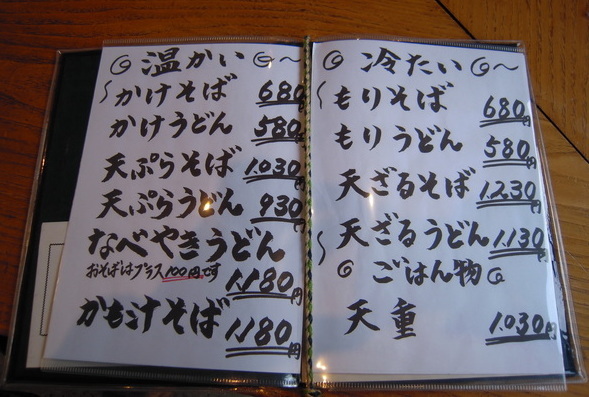 温かい
かけそば 680円
かけうどん 580円
天ぷらそば 1,030円
天ぷらうどん 930円
なべやきうどん
おそばはプラス100円です 1,180円
かも汁そば 1,180円
冷たい
もりそば 680円
もりうどん 580円
天ざるそば 1,230円
天ざるうどん 1,130円
ごはん物
天重 1,030円